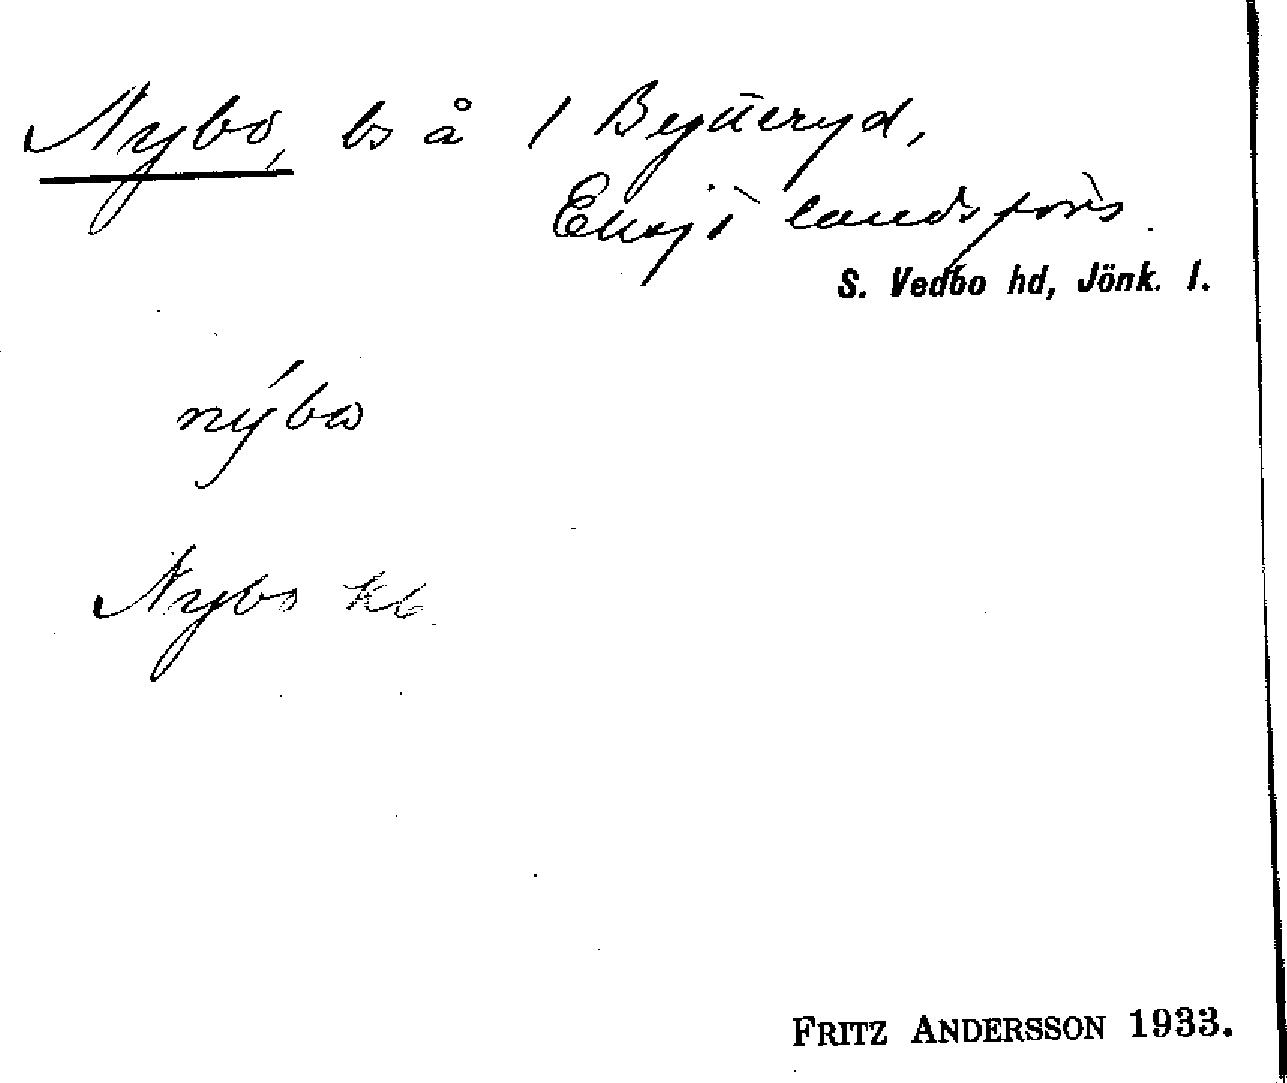 Nybo, bs å 1 Bejteryd,
Eksjö landsförs.
S. Vedbo hd, Jönk. l.
nýbo
Nybo kb.
FRITZ ANDERSSON 1933.